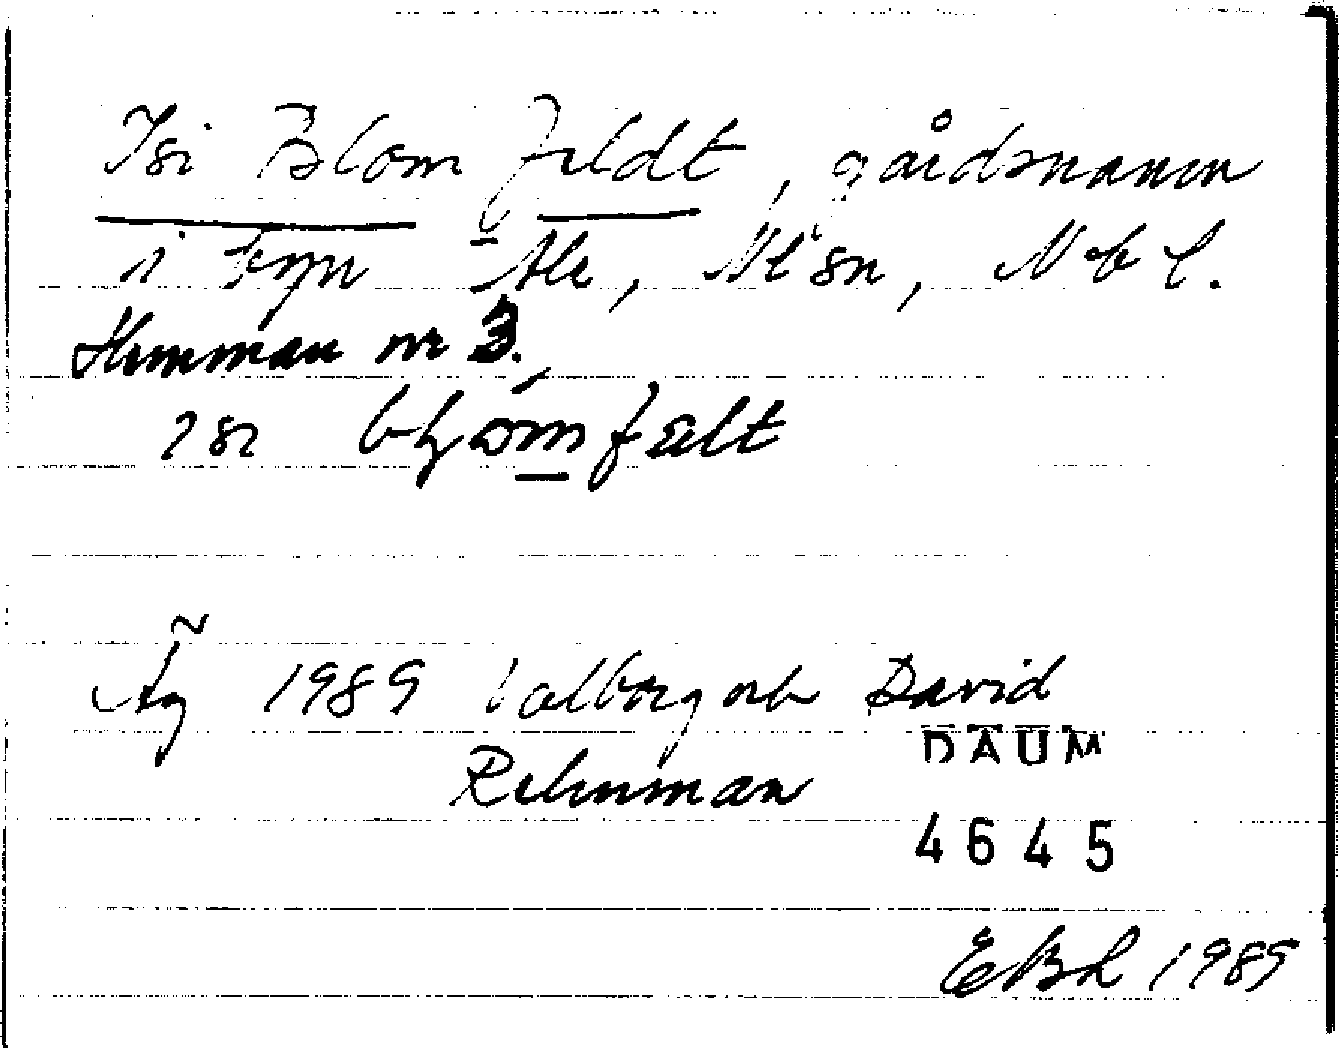 Isi Blomfeldt, gårdsnamn
i byn Åle, Nlsn, Nbl.
Hemman nr 3.
isi
Äg 1989 Valborg och David
Rehnman
DAUM
4645
EBL 1989